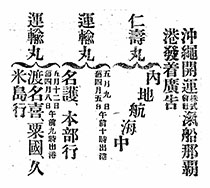 沖繩開運株式會社滊船那覇
港發着廣告
仁壽丸
内地航海中
運輸丸
五月九日午前十時出港
名護、本部行
運輸丸
渡名喜、粟國、久
米島行